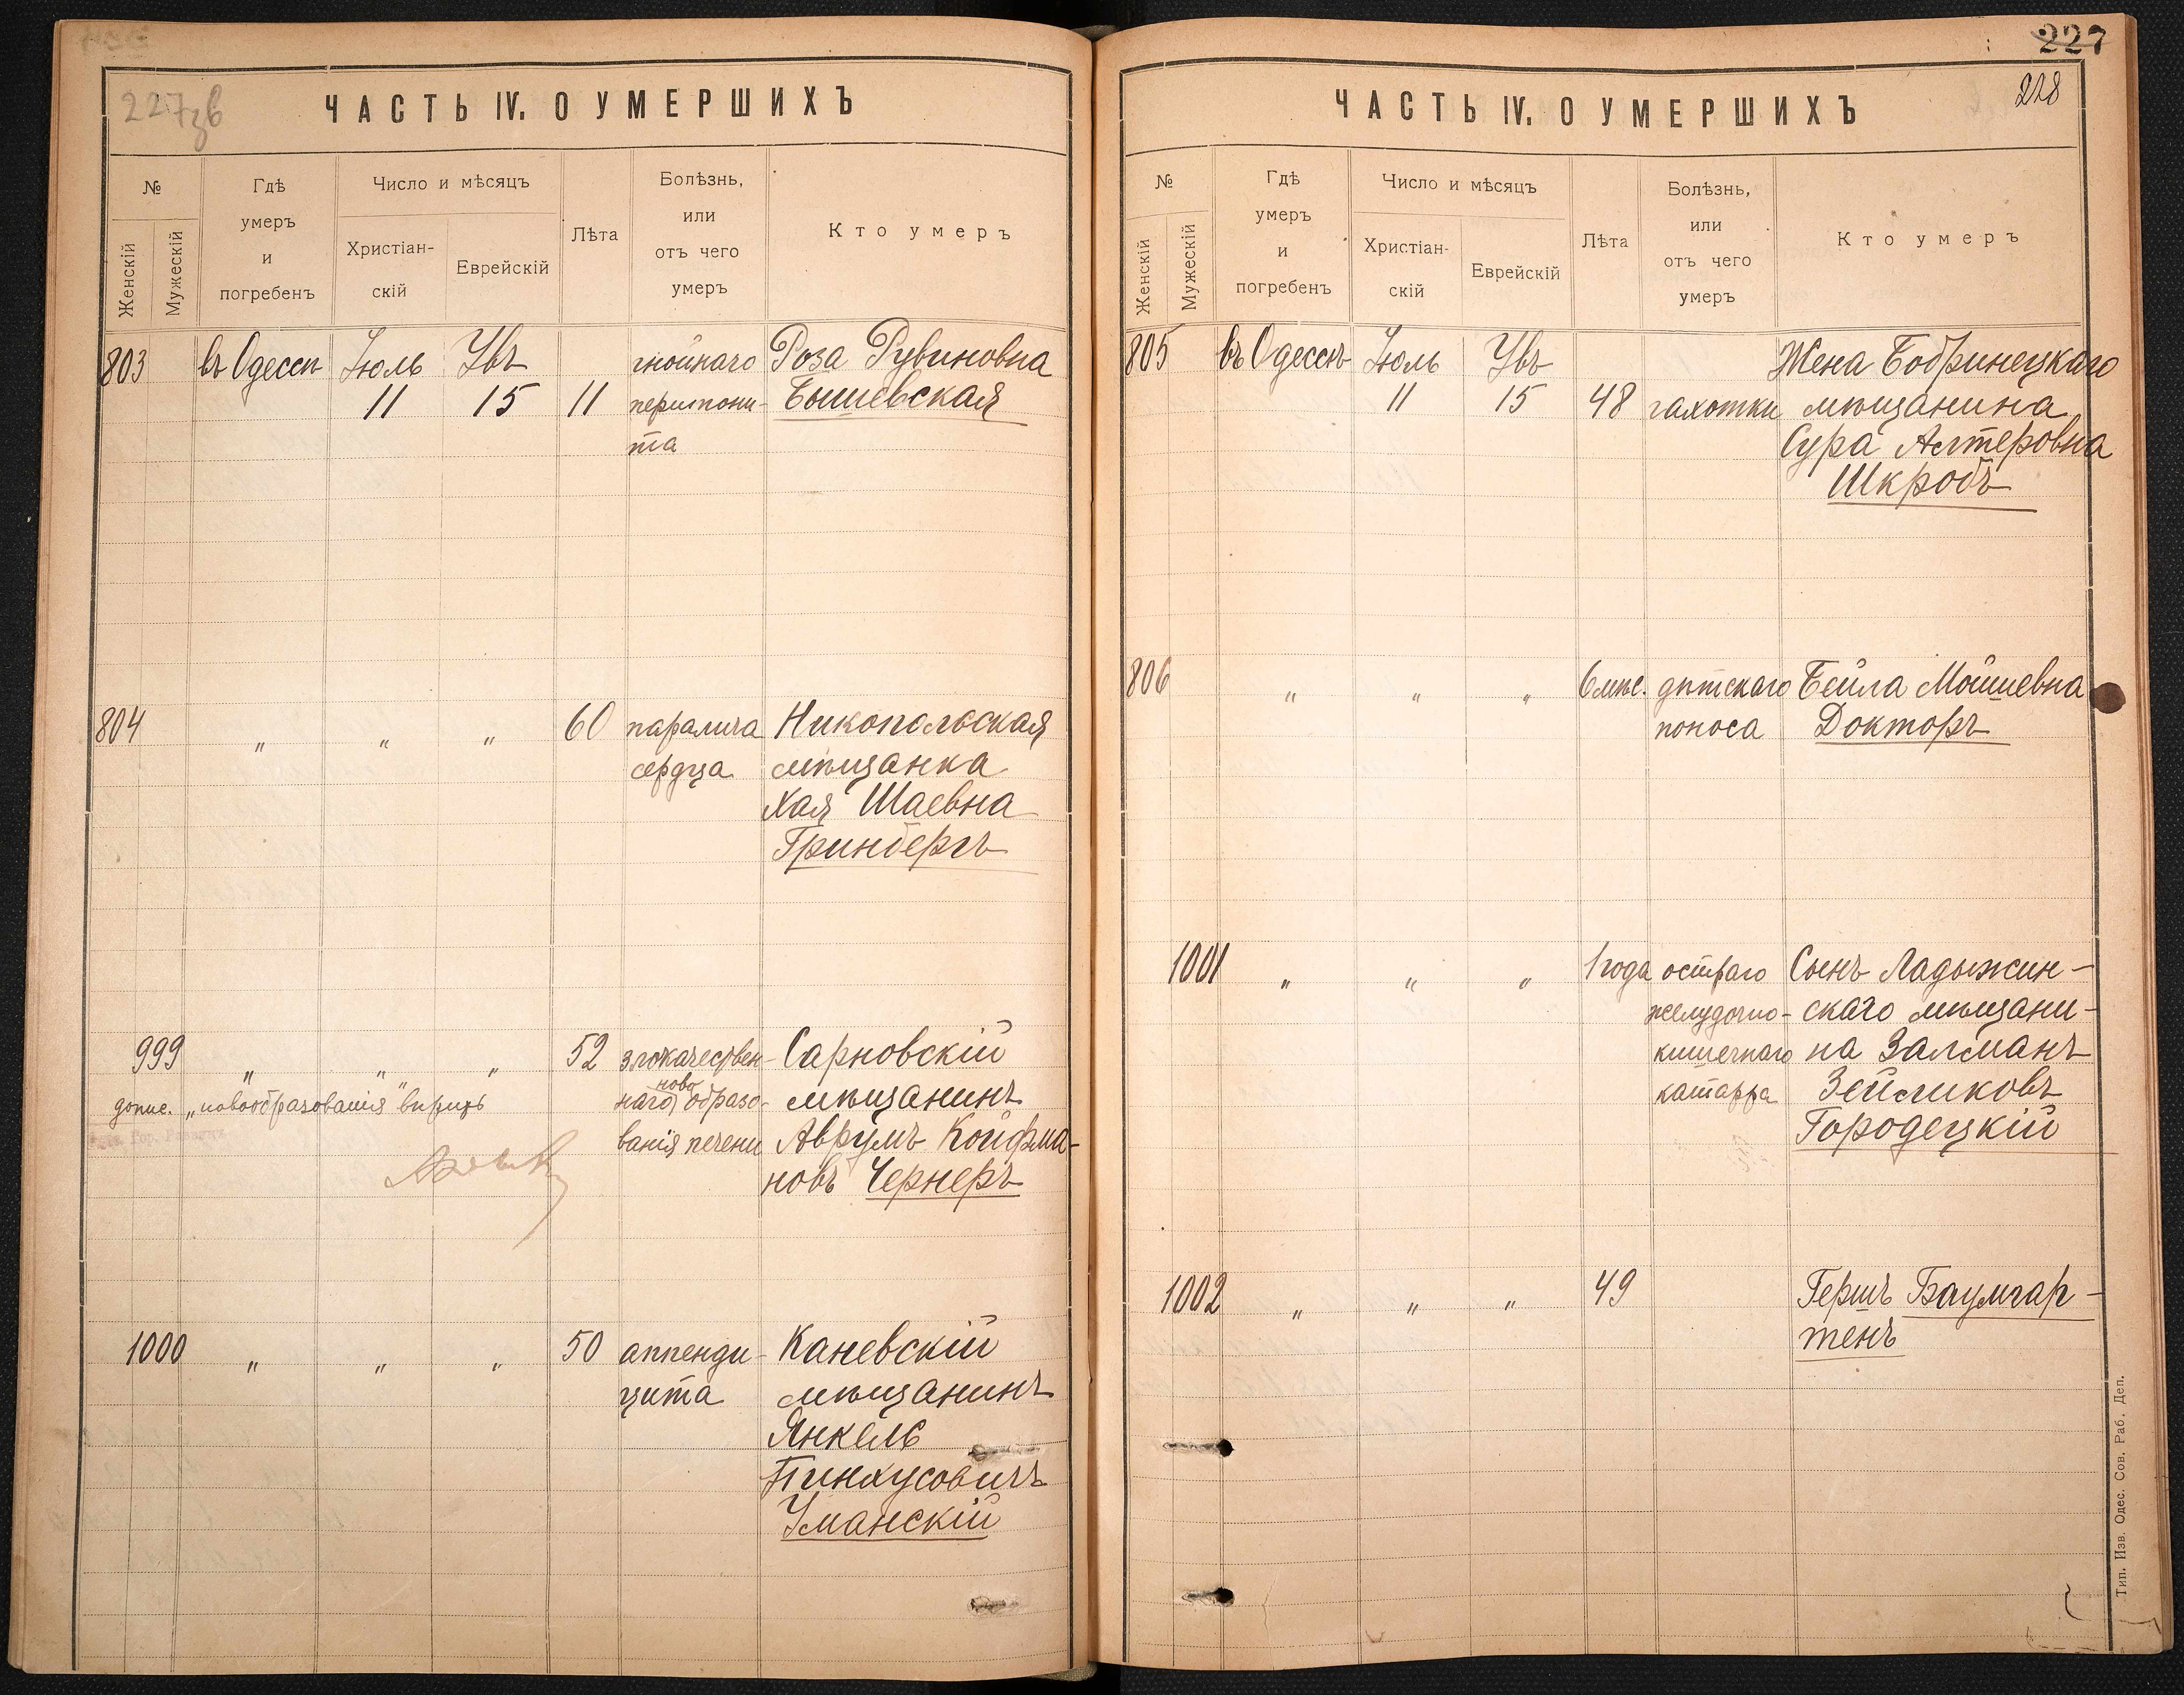 227зв
ЧАСТЬ IV. О УМЕРШИХЪ
№
Женскій
Мужескій
Гдѣ
умеръ
и
погребенъ
Число и мѣсяцъ
Христіан-
скій
Еврейскій
Лѣта
Болѣзнь,
или
отъ чего
умеръ
Кто умеръ
803 въ Одессѣ Іюль Увъ гнойнаго Роза Рувиновна
11 15 11 перитони- Бышевская
та
804 " " " 60 паралича Никопольская
сердца мѣщанка
Хая Шаевна
Гринбергъ
999 " " " 52 злокачествен- Сарновскій
ново
допис. „новообразованія" впредь наго образо- мѣщанинъ
ванія печени Аврумъ Койфма-
новъ Чернеръ
1000 " " " 50 аппенди- Каневскій
цита мѣщанинъ
Янкель
Пинхусовичъ
Уманскій
227
228
ЧАСТЬ IV. О УМЕРШИХЪ
№
Женскій
Мужескій
Гдѣ
умеръ
и
погребенъ
Число и мѣсяцъ
Христіан-
скій
Еврейскій
Лѣта
Болѣзнь,
или
отъ чего
умеръ
Кто умеръ
805 въ Одессѣ Іюль Увъ Жена Бобринецкаго
11 15 48 чахотки мѣщанина
Сура Алтеровна
Шкробъ
806 " " " 6 мѣс. дѣтскаго Бейла Мойшевна
поноса Докторъ
1001 " " " 1 года остраго Сынъ Ладыжин-
желудочно- скаго мѣщани-
кишечнаго на Залманъ
катарра Зейликовъ
Городецкій
1002 " " " 49 Гершъ Баумгар-
тенъ
Тип. Изв. Одес. Сов. Раб. Деп.